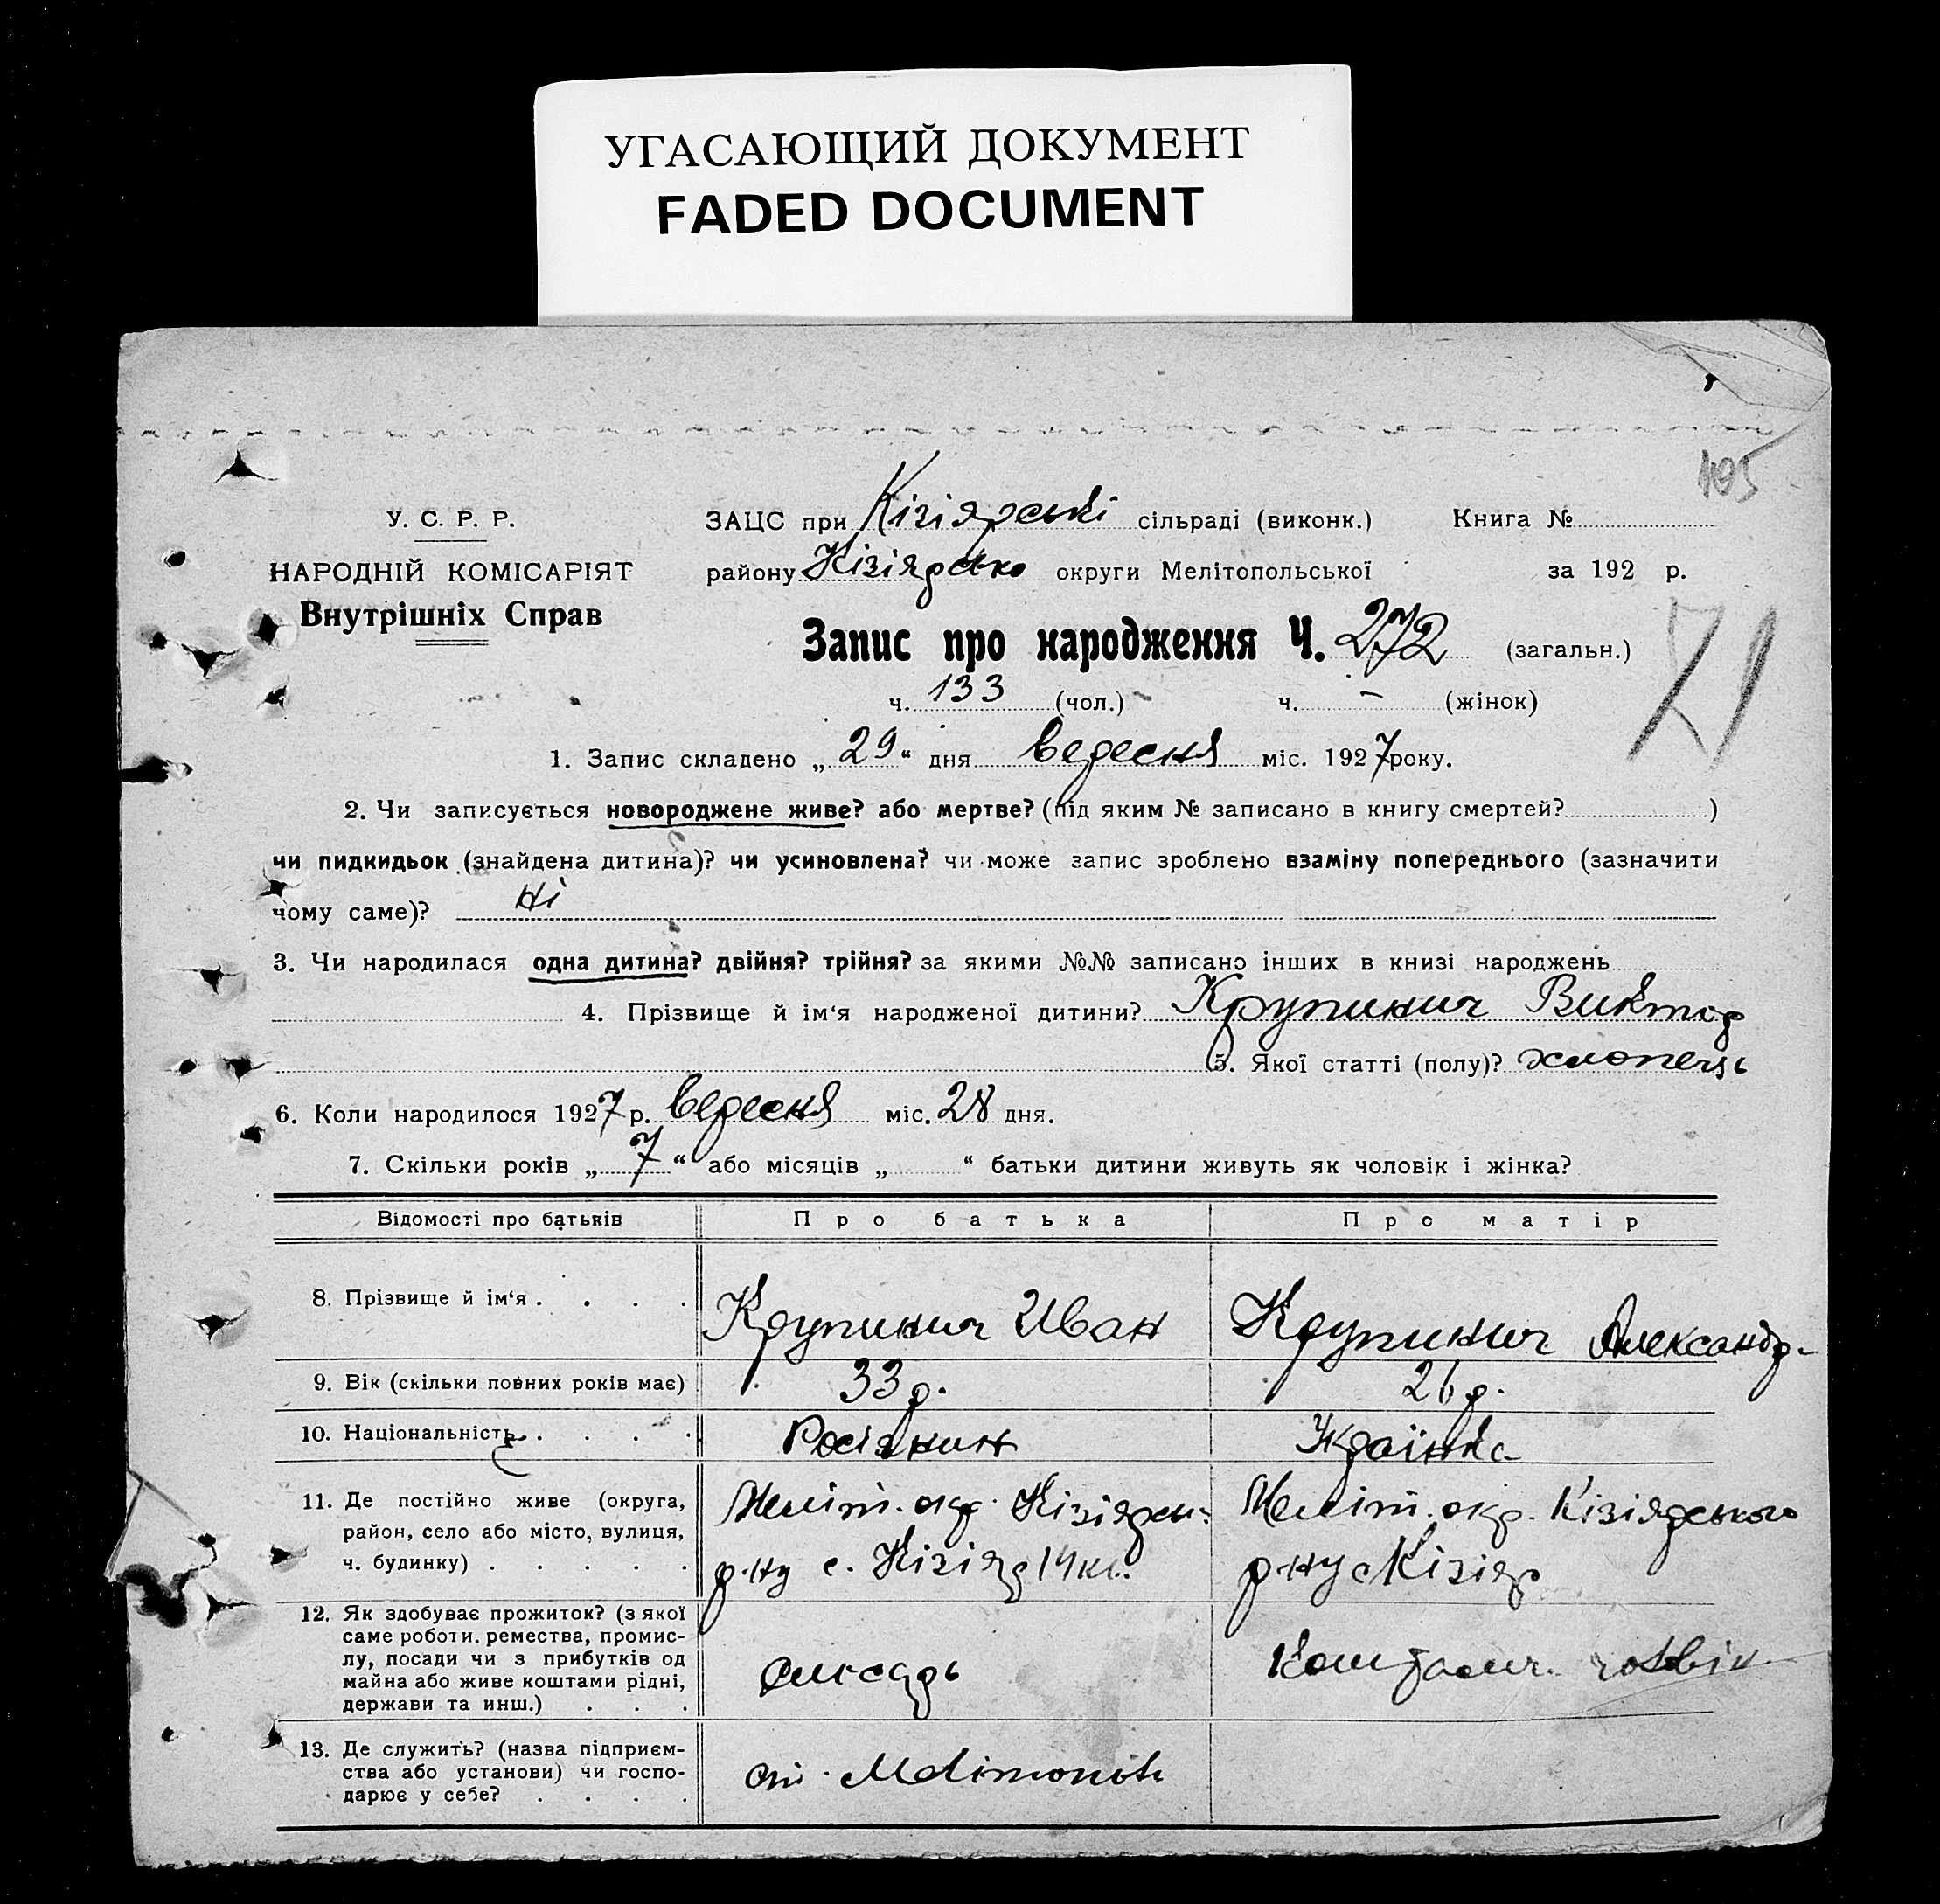 УГАСАЮЩИЙ ДОКУМЕНТ
FADED DOCUMENT
105
У. С. Р. Р.
НАРОДНІЙ КОМІСАРІЯТ
Внутрішніх Справ
ЗАЦС при Кізіярські сільраді (виконк.) Книга №
району Кізіярсько округи Мелітопольської за 192 р.
Запис про народження Ч. 272 (загальн.)
71
ч. 133 (чол.) ч. – (жінок)
1. Запис складено „ 29 “ дня вересня міс. 1927 року.
2. Чи записується новороджене живе? або мертве? (під яким № записано в книгу смертей? )
чи пидкидьок (знайдена дитина)? чи усиновлена? чи може запис зроблено взаміну попереднього (зазначити
чому саме)? ні
3. Чи народилася одна дитина? двійня? трійня? за якими №№ записано інших в книзі народжень
4. Прізвище й ім‘я народженої дитини? Крупинич Виктор
5. Якої статті (полу)? хлопець
6. Коли народилося 1927 р. вересня міс. 28 дня.
7. Скільки років „ 7 “ або місяців „ “ батьки дитини живуть як чоловік і жінка?
Відомості про батьків Про батька Про матір
8. Прізвище й ім‘я . . . . Крупинич Иван Крупинич Александр-
9. Вік (скільки повних років має) 33 р. 26 р.
10. Національність . . . . Росіянин Українка
11. Де постійно живе (округа,
район, село або місто, вулиця,
ч. будинку) . . . . .
Меліт. окр. Кізіярськ.
р-ну с. Кізіяр 14 кл.
Меліт. окр. Кізіярського
р-ну с Кізіяр
12. Як здобуває прожиток? (з якої
саме роботи, ремества, промис-
лу, посади чи з прибутків од
майна або живе коштами рідні,
держави та инш.) . . .
слюсарь
Коштом чоловік.
13. Де служить? (назва підприєм-
ства або установи) чи госпо-
дарює у себе? . . . .
ст. Мелітополь